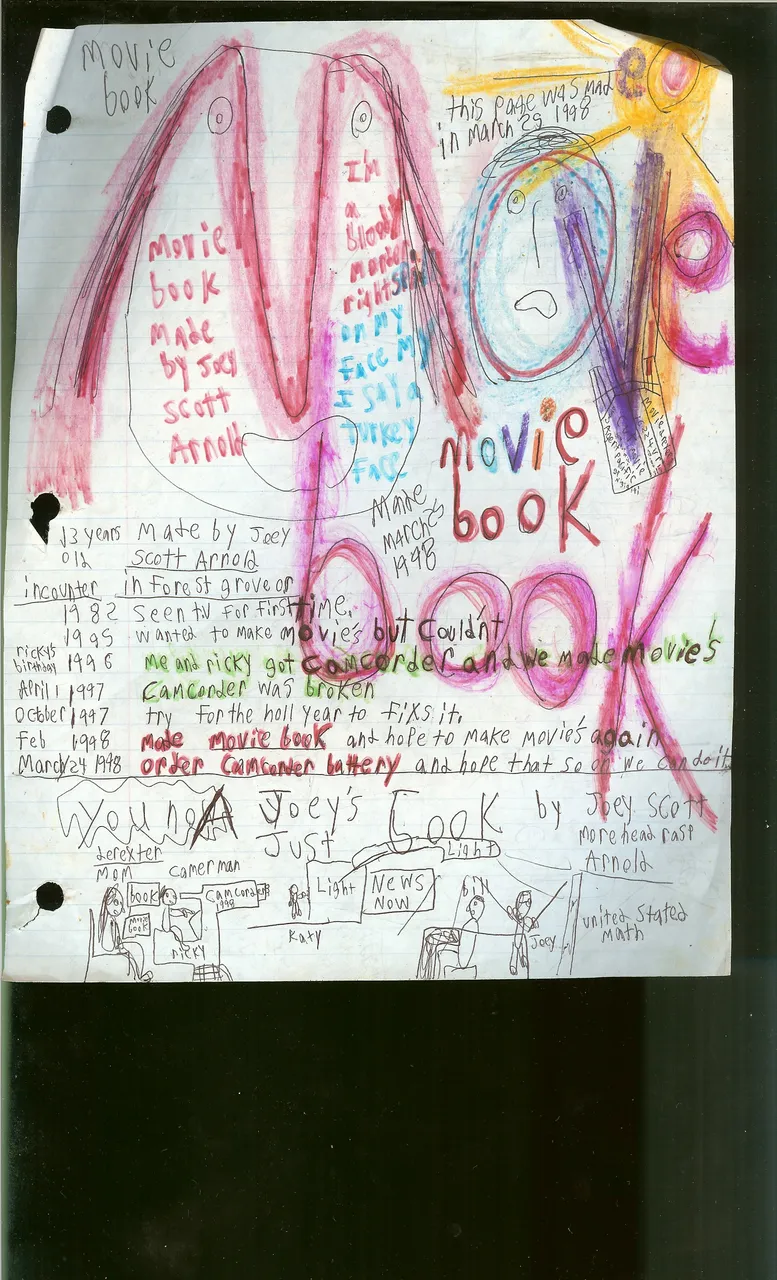 movie
book
this page was mad
in March 29 1998
Movie
movie
book
made
by Joey
scott
Arnold
I'm
a
bloody
right
on my
face my
I say a
turkey
face
movie
book
Made
March 29
1998
book
13 years
old
Made by Joey
Scott Arnold
incounter in Forest grove or
1982 Seen tv for first time.
1995 wanted to make movie's but couldn't
ricky's
birthday 1996 me and ricky got camcorder and we made movie's
April 1 1997 Camcorder was broken
October 1997 try for the holl year to fixs it.
Feb 1998 made movie book and hope to make movie's again
March 24 1998 order camcorder battery and hope that soon we can do it
Young Joey's book by Joey Scott
Just
more head rast
Arnold
derexter
Mom
camer man
book
movie
book
Camcorder
1998
ricky
Light
Light
NEWS
NOW
Katy
Joey
united Stated
Math